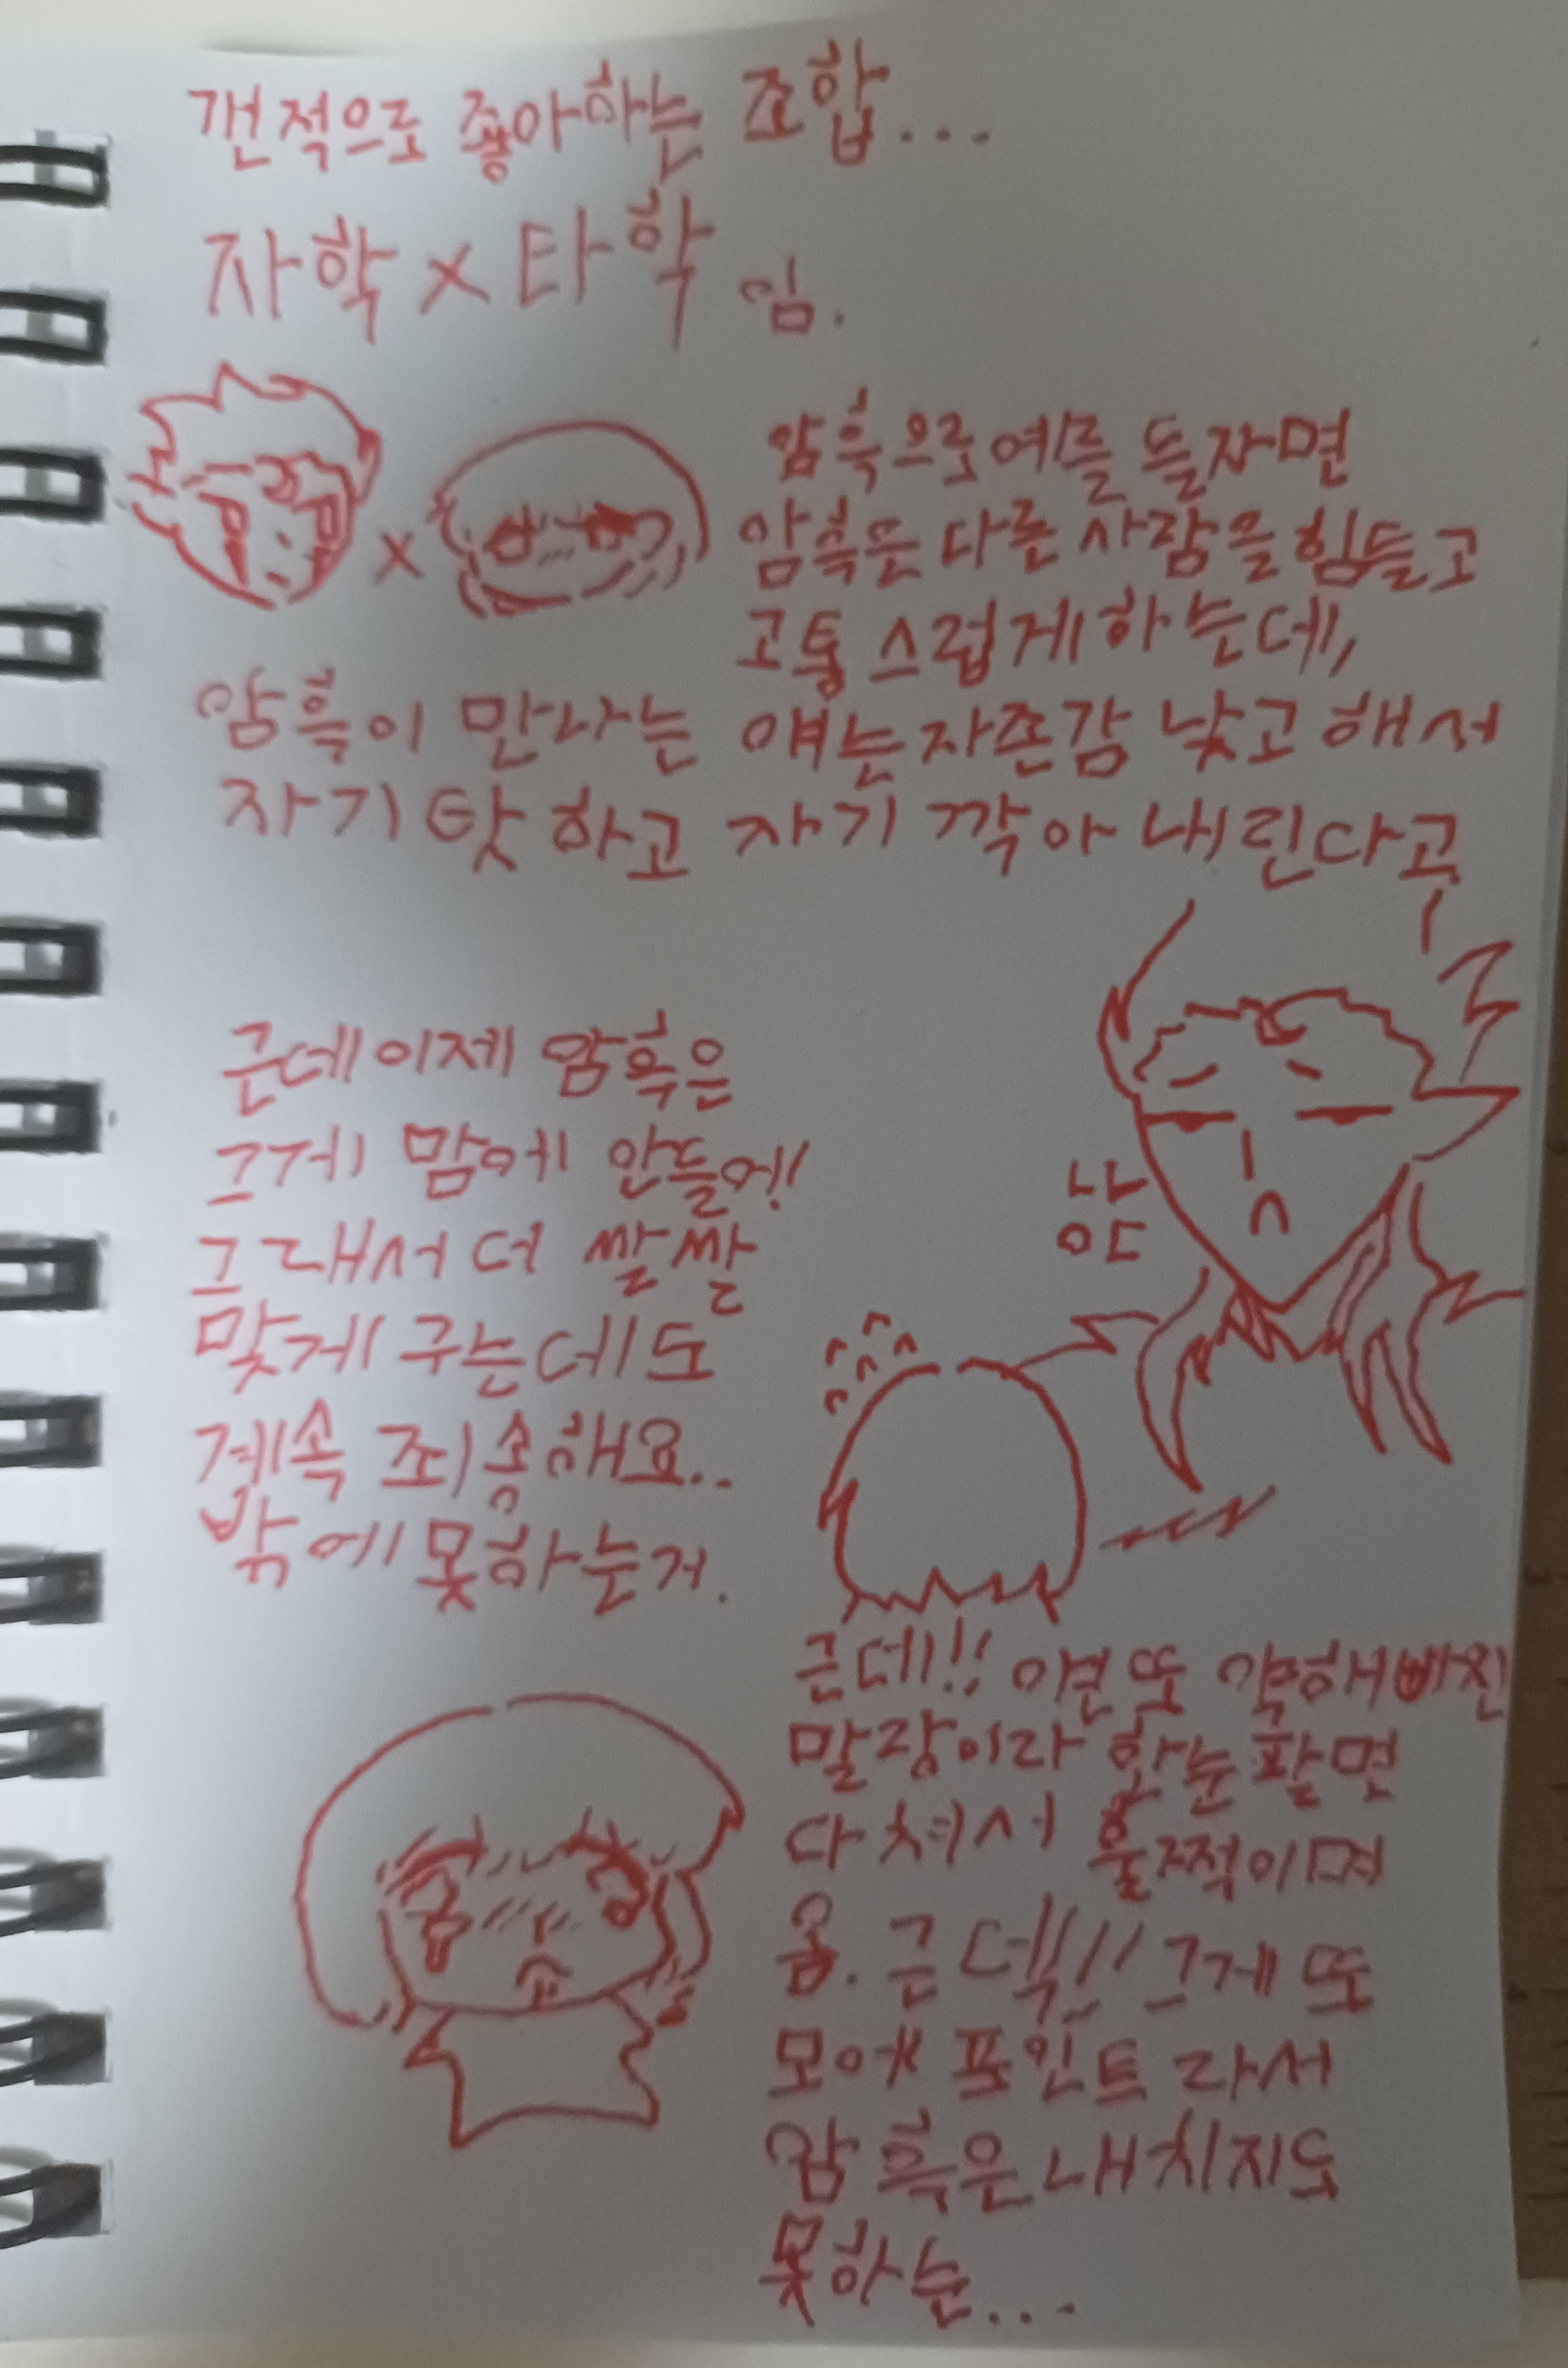 갠적으로 좋아하는 조합...
자학 × 타학 임.
×
암흑으로 예를 들자면
암흑은 다른 사람을 힘들고
고통스럽게 하는데,
암흑이 만나는 얘는 자존감 낮고 해서
자기 탓 하고 자기 깍아 내린다고,
근데 이제 암흑은
그게 맘에 안들어!
그래서 더 쌀쌀
맞게 구는데도
계속 죄송해요..
밖에 못하는거.
근데!! 이면 또 약해빠진
말랑이라 한눈팔면
다쳐서 훌쩍이며
옴. 근데!! 그게 또
모에 포인트라서
암흑은 내치지도
못하는...